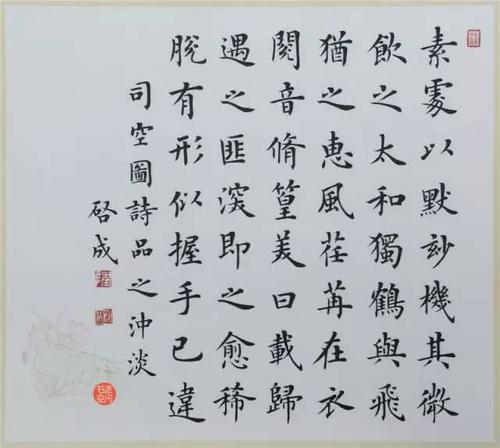 素處以默玅機其微
飲之太和獨鶴與飛
猶之惠風荏苒在衣
閱音脩篁美曰載歸
遇之匪深即之愈稀
脫有形似握手已違
司空圖詩品之沖淡
啓成